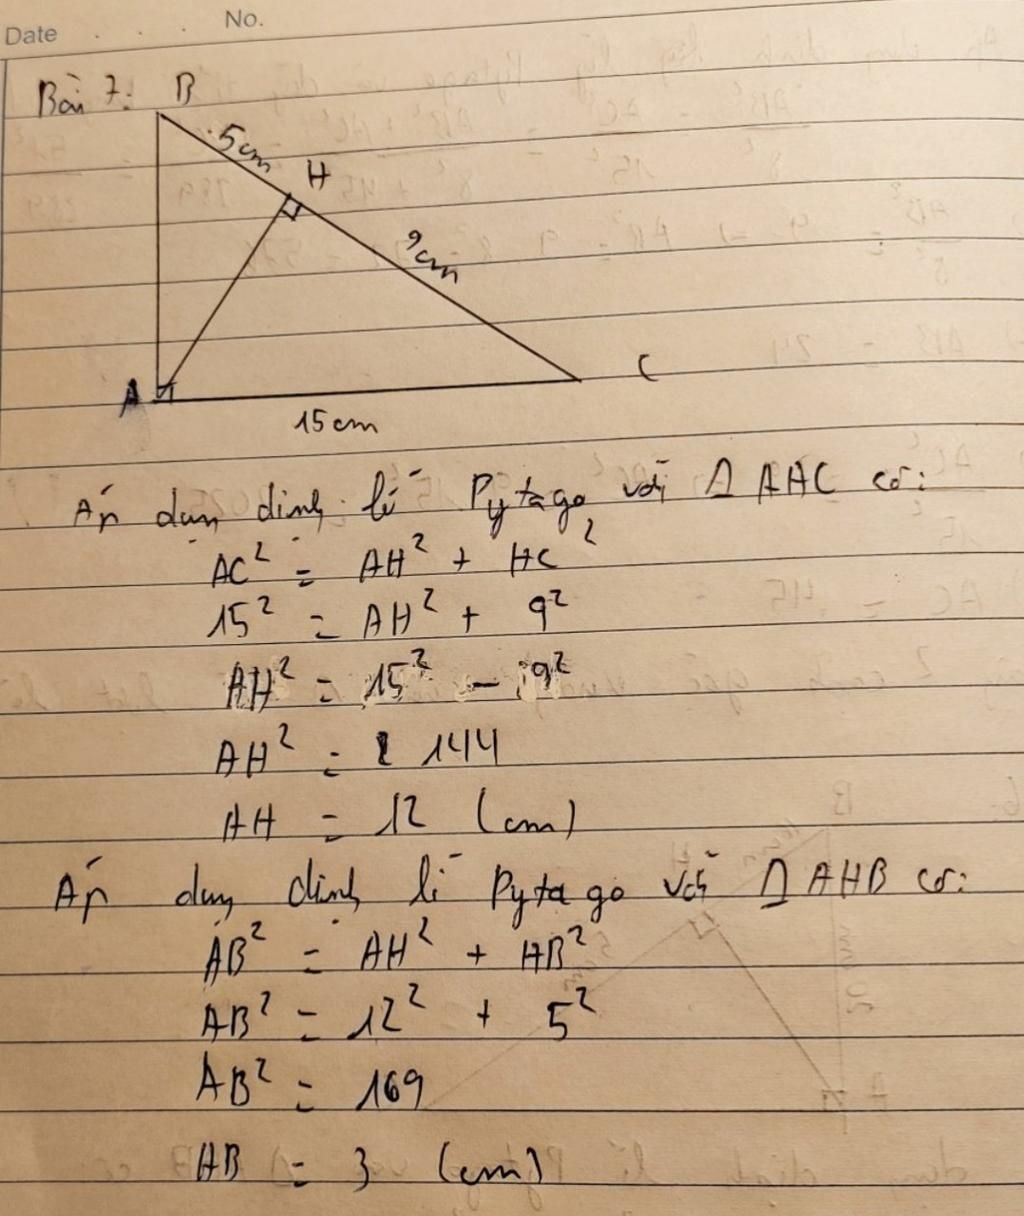 Date No.
Bài 7:
B
5cm
H
9cm
A
C
15cm
Áp dụn định lí Pytago với Δ AHC có:
AC² = AH² + HC²
15² = AH² + 9²
AH² = 15² - 9²
AH² = 144
AH = 12 (cm)
Áp dụng định lí Pytago với Δ AHB có:
AB² = AH² + HB²
AB² = 12² + 5²
AB² = 169
AB = 3 (cm)